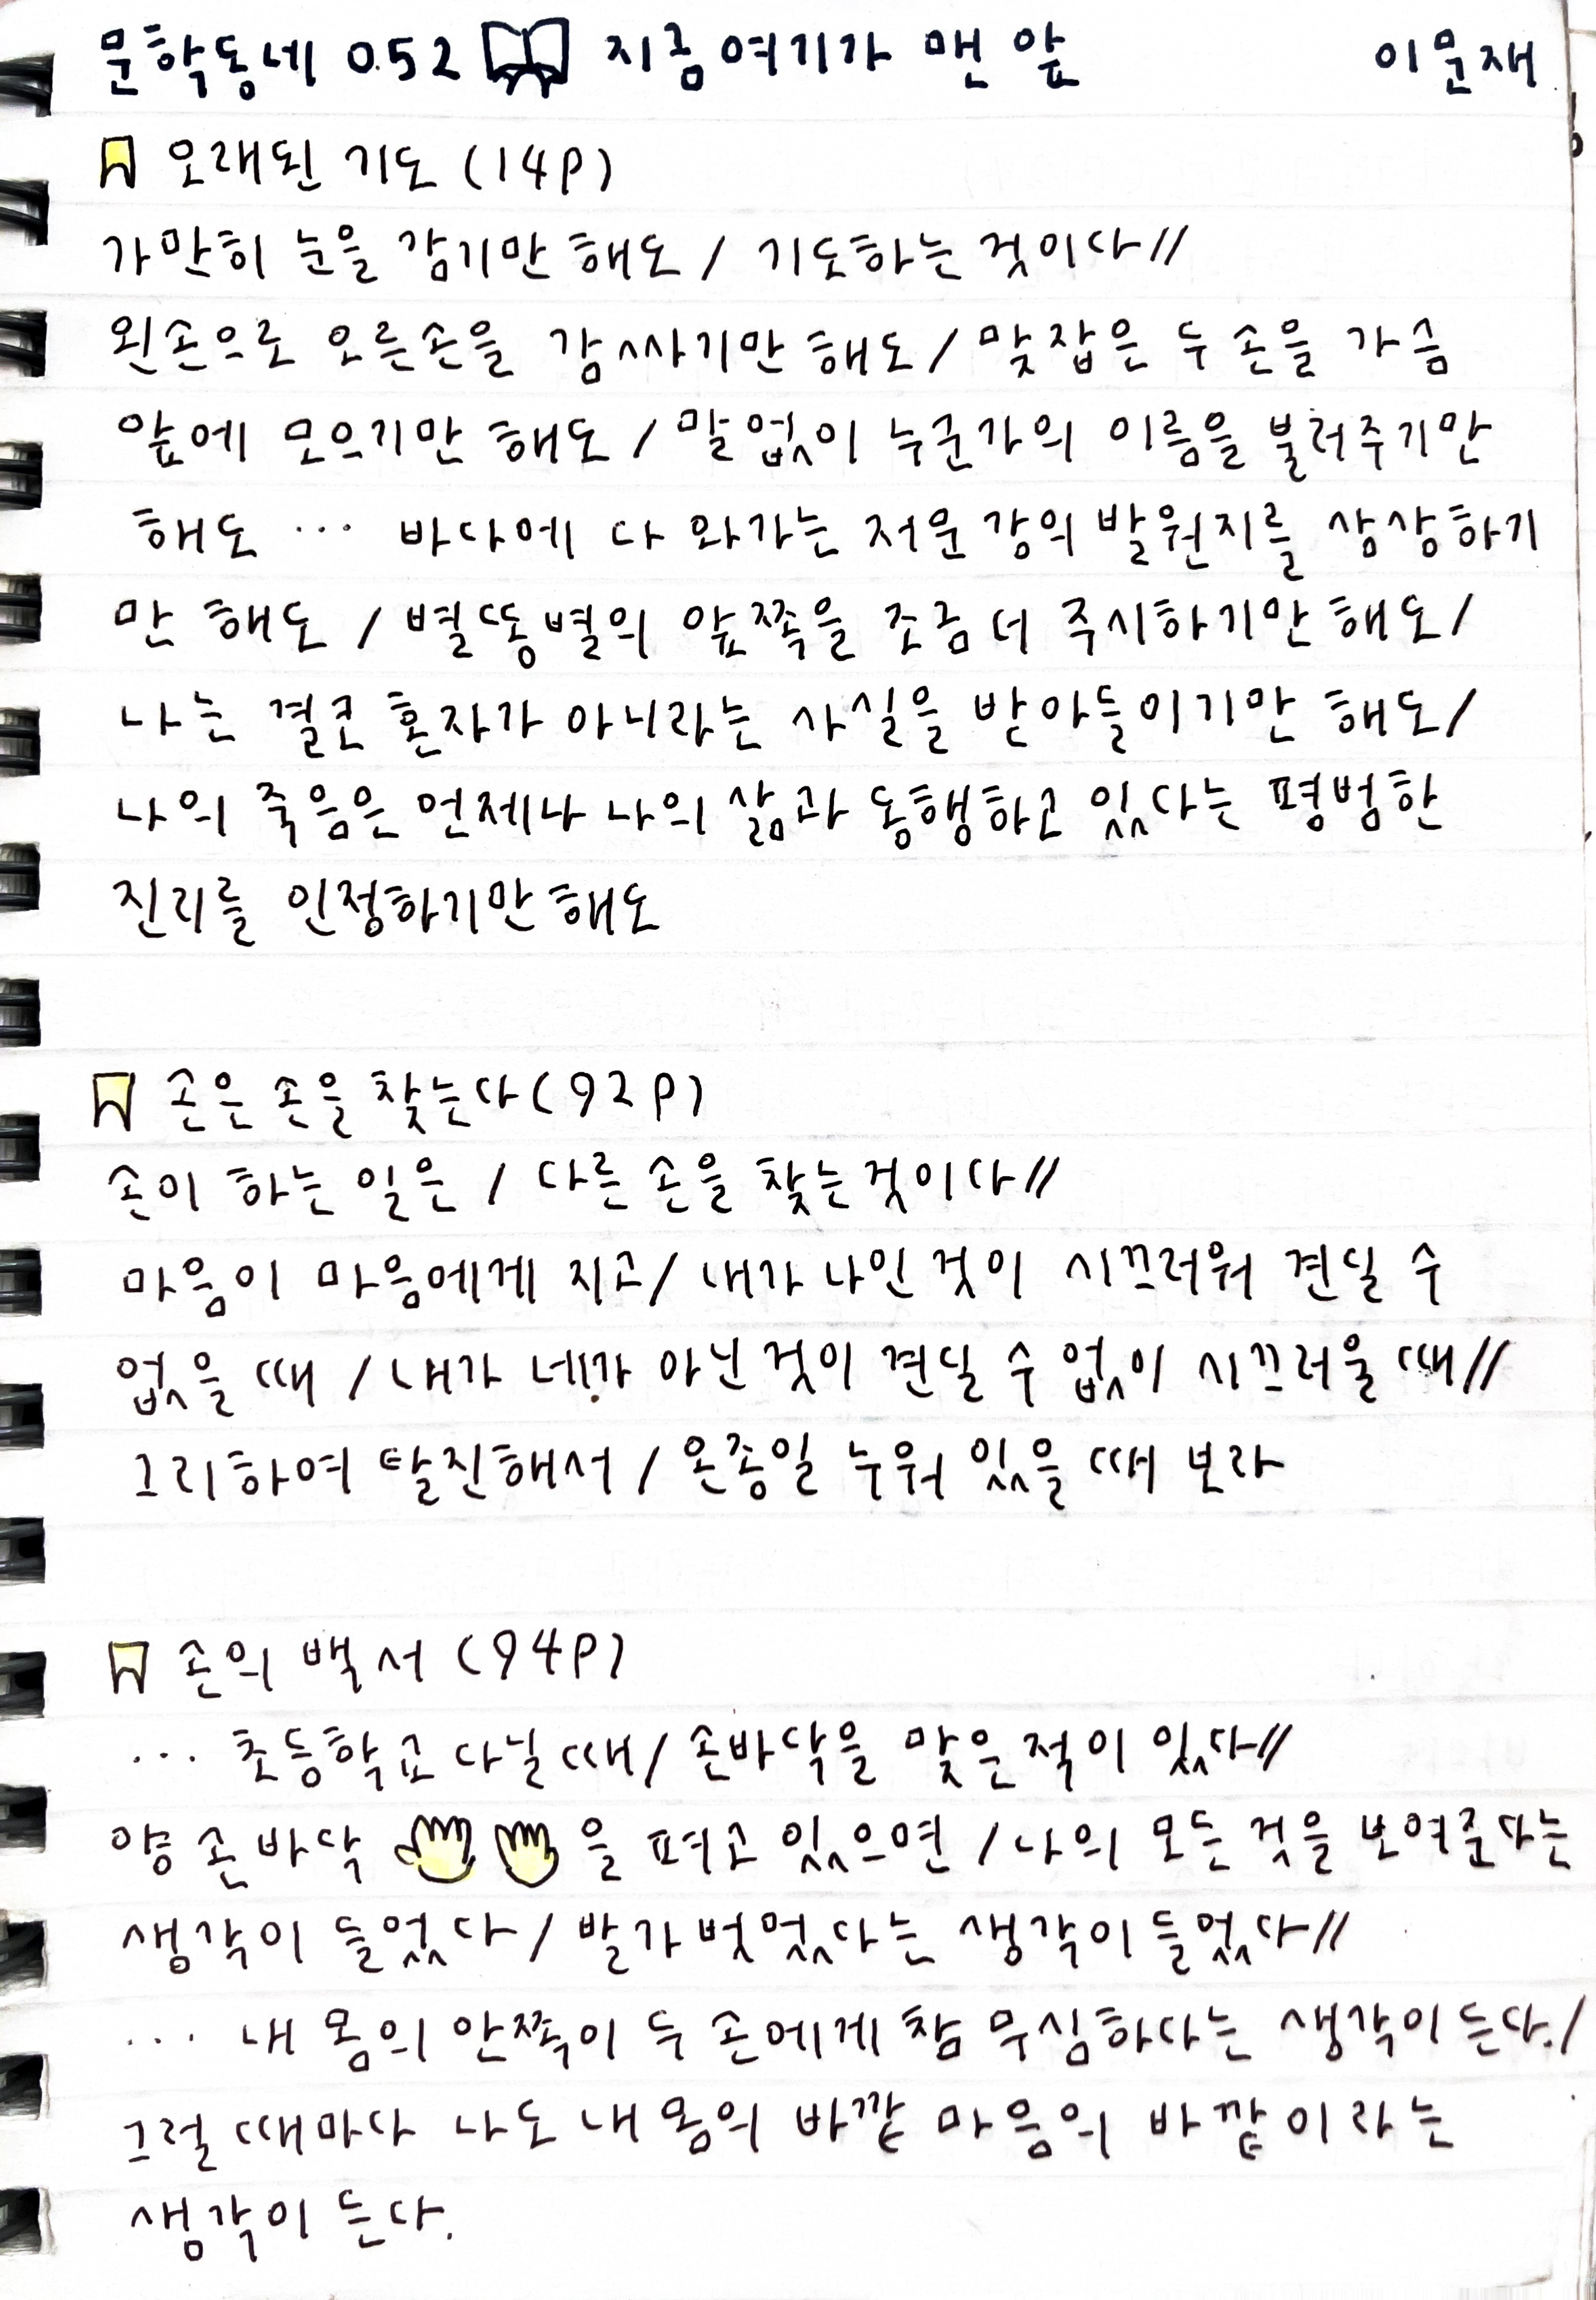 문학동네 052 지금 여기가 맨 앞 이문재
오래된 기도 (14p)
가만히 눈을 감기만 해도 / 기도하는 것이다//
왼손으로 오른손을 감싸기만 해도 / 맞잡은 두 손을 가슴
앞에 모으기만 해도 / 말 없이 누군가의 이름을 불러주기만
해도 … 바다에 다 와가는 저문 강의 발원지를 상상하기
만 해도 / 별똥별의 앞쪽을 조금 더 주시하기만 해도/
나는 결코 혼자가 아니라는 사실을 받아들이기만 해도/
나의 죽음은 언제나 나의 삶과 동행하고 있다는 평범한
진리를 인정하기만 해도
손은 손을 찾는다 (92p)
손이 하는 일은 / 다른 손을 찾는것이다//
마음이 마음에게 지고/ 내가 나인 것이 시끄러워 견딜 수
없을 때 / 내가 네가 아닌 것이 견딜 수 없이 시끄러울 때//
그리하여 탈진해서 / 온종일 누워 있을 때 보라
손의 백서 (94p)
… 초등학교 다닐 때/ 손바닥을 맞은 적이 있다//
양 손바닥 을 펴고 있으면 / 나의 모든 것을 보여준다는
생각이 들었다 / 발가벗었다는 생각이 들었다//
… 내 몸의 안쪽이 두 손에게 참 무심하다는 생각이 든다./
그럴 때마다 나도 내 몸의 바깥 마음의 바깥이라는
생각이 든다.